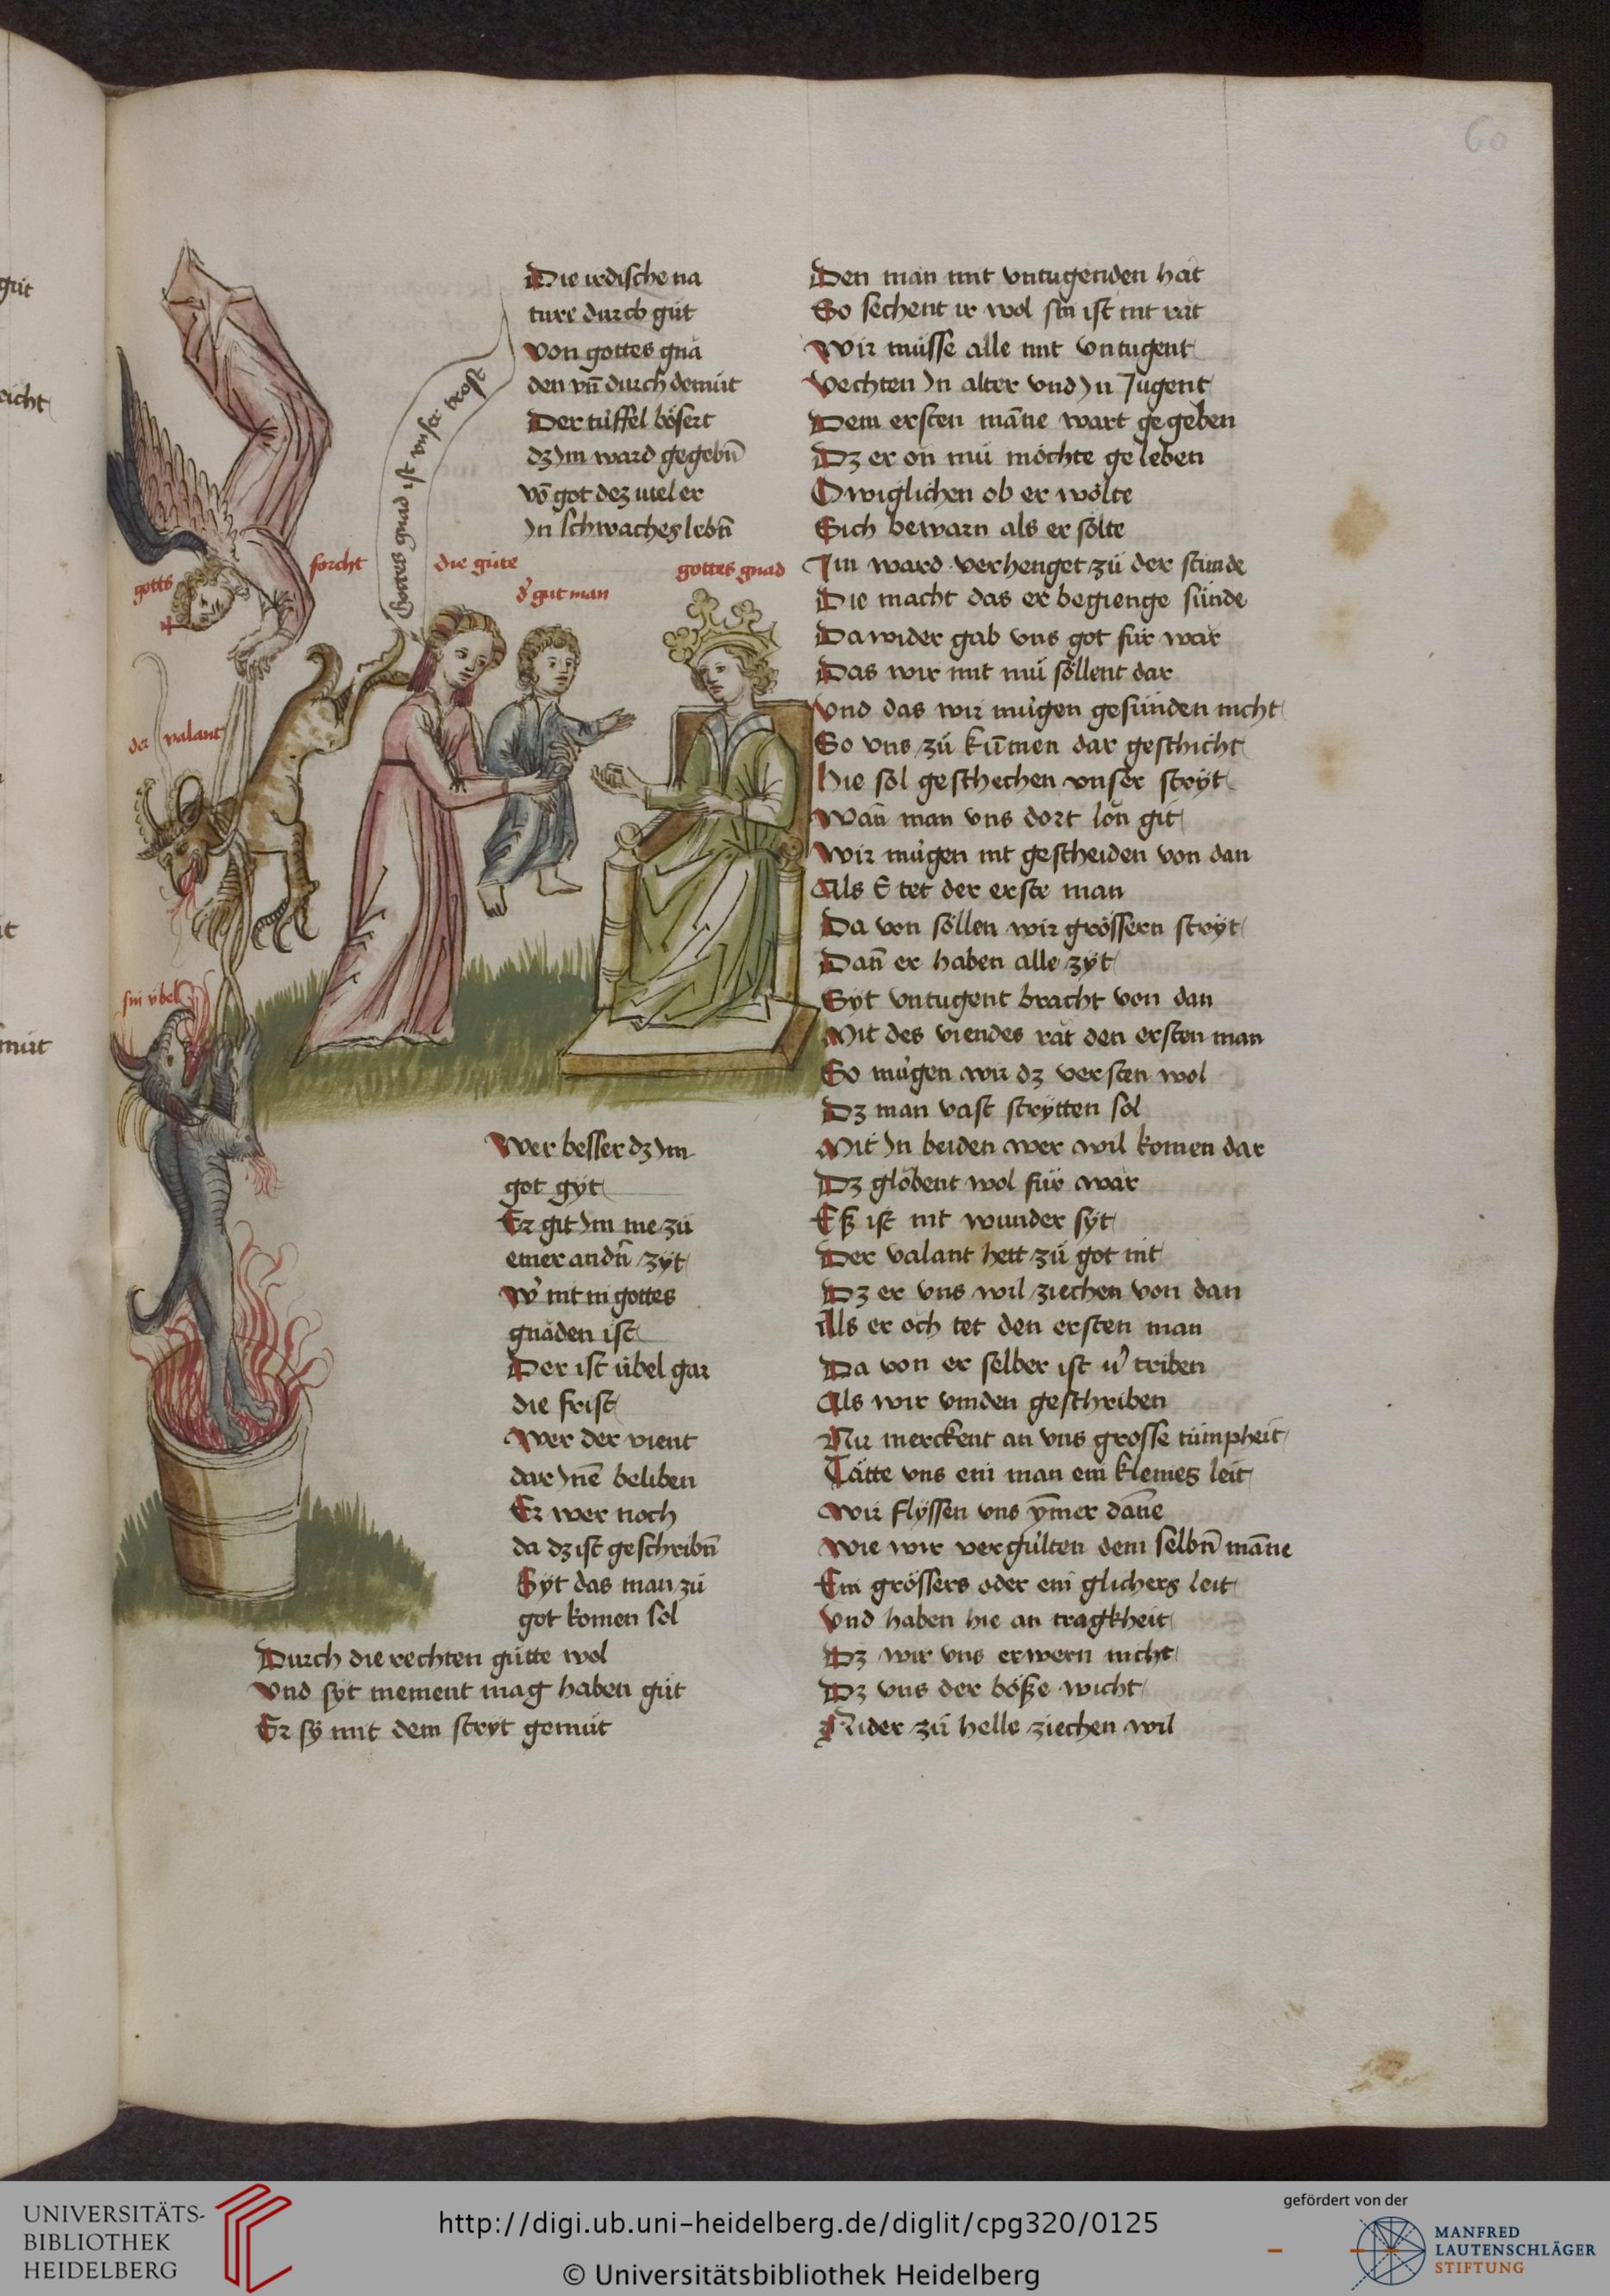 60
Die irdische na
ture durch güt
Von gottes gnă
den vn̄ durch demüt
Der tüffel bösert
dz Im ward gegebn̄
vō got dez viel er
In schwaches lebn̄
gotts
forcht
Gottes gnad ist vnser trost
die güte
d' gut man
gottes gnad
der valant
sin vbel
Wer besser dz Im
got gyt
Er git Im me zü
einer andn̄ zyt
W' nit in gottes
gnăden ist
Der ist übel gar
die frist
Wer der vient
dar Inē beliben
Er wer noch
da dz ist geschribn̄
Syt das man zü
got komen sol
Durch die rechten gütte wol
Vnd syt niement mag haben güt
Er sÿ mit dem stryt gemüt
Den man mit vntugenden hăt
So sechent ir wol sin ist nit răt
Wir müsse alle mit Vntugent
Vechten In alter vnd In Jugent
Dem ersten mān̄e wart gegeben
Dz er on mü möchte geleben
Ewiglichen ob er wolte
Sich bewarn als er solte
Im ward verhenget zü der stunde
Die macht das er begienge sünde
Da wider gab vns got für wăr
Das wir mit mü söllent dar
Vnd das wir mügen gesünden nicht
So vns zü kūmen dar geschicht
Hie sol geschechen vnser stryt
Wān man vns dort lŏn git
Wir mügen nit gescheiden von dan
Als E tet der erste man
Da von söllen wir grössern stryt
Dan̄ er haben alle zyt
Syt Vntugent bracht von dan
Mit des viendes răt den ersten man
So mügen wir dz versten wol
Dz man vast strytten sol
Mit In beiden wer wil komen dar
Dz glöbent wol für wăr
Eß ist nit wunder syt
Der valant hett zü got nit
Dz er vns wil ziechen von dan
Als er och tet den ersten man
Da von er selber ist v' triben
Als wir vinden geschriben
Nu merckent an vns grosse tümpheit
Tätte vns ein man ein kleines leit
Wir flyssen vns ȳmer dān̄e
Wie wir vergülten dem selbn̄ mān̄e
Ein grössers oder ein glichers leit
Vnd haben hie an tragkheit
Dz wir vns erwern nicht
Dz vns der böße wicht
Nider zü helle ziechen wil
UNIVERSITÄTS-
BIBLIOTHEK
HEIDELBERG
http://digi.ub.uni-heidelberg.de/diglit/cpg320/0125
© Universitätsbibliothek Heidelberg
gefördert von der
MANFRED
LAUTENSCHLÄGER
STIFTUNG